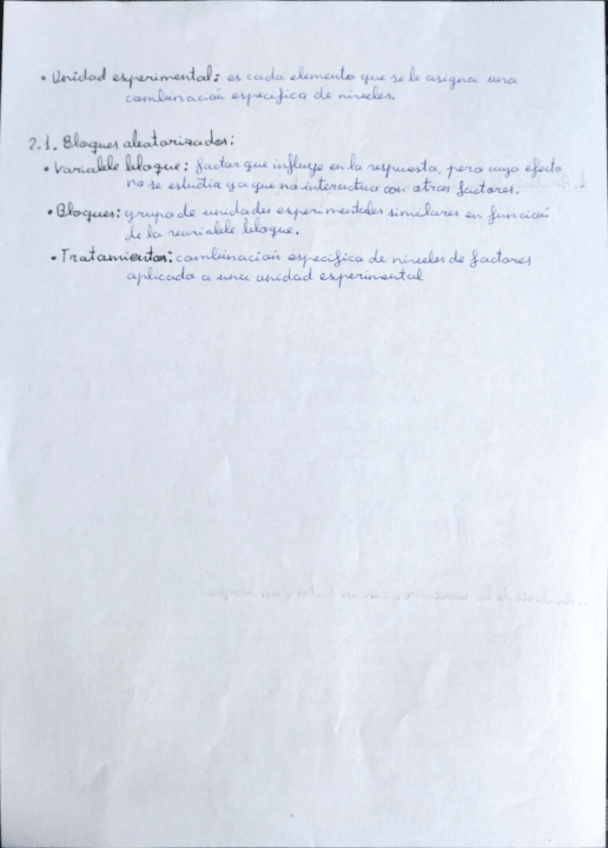 • Unidad experimental: es cada elemento que se le asigna una
combinación específica de niveles.
2.1. Bloques aleatorizados:
• Variable bloque: factor que influye en la respuesta, pero cuyo efecto
no se estudia ya que no interactua con otros factores.
• Bloques: grupo de unidades experimentales similares en función
de la variable bloque.
• Tratamientos: combinación específica de niveles de factores
aplicada a una unidad experimental